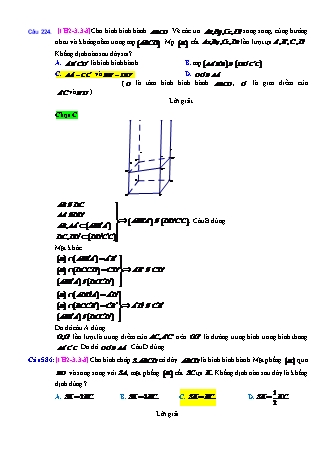 Câu 224. [1H2-3.3-3] Cho hình bình hành ABCD. Vẽ các tia Ax, By, Cz, Dt song song, cùng hướng
nhau và không nằm trong mp (ABCD). Mp (α) cắt Ax, By, Cz, Dt lần lượt tại A', B', C', D'.
Khẳng định nào sau đây sai?
A. A'B'C'D' là hình bình hành. B. mp (AA'B'B) // (DD'C'C).
C. AA' = CC' và BB' = DD'. D. OO' // AA'.
(O là tâm hình bình hành ABCD, O' là giao điểm của
A'C' và B'D').
Lời giải
Chọn C
AB // DC
AA' // DD'
AB, AA' ⊂ (ABB'A')
DC, DD' ⊂ (DD'C'C)
⇒ (ABB'A') // (DD'C'C). Câu B đúng.
Mặt khác
(α) ∩ (ABB'A') = A'B'
(α) ∩ (DCC'D') = C'D'
(ABB'A') // (DCC'D')
⇒ A'B' // C'D'
Do đó câu A đúng.
O, O' lần lượt là trung điểm của AC, A'C' nên OO' là đường trung bình trong hình thang
AA'C'C. Do đó OO' // AA'. Câu D đúng.
[1H2-3.3-3] Cho hình chóp S.ABCD có đáy ABCD là hình bình hành. Mặt phẳng (α) qua
BD và song song với SA, mặt phẳng (α) cắt SC tại K. Khẳng định nào sau đây là khẳng
định đúng?
A. SK = 2KC. B. SK = 3KC. C. SK = KC. D. SK = 1/2 KC.
Lời giải